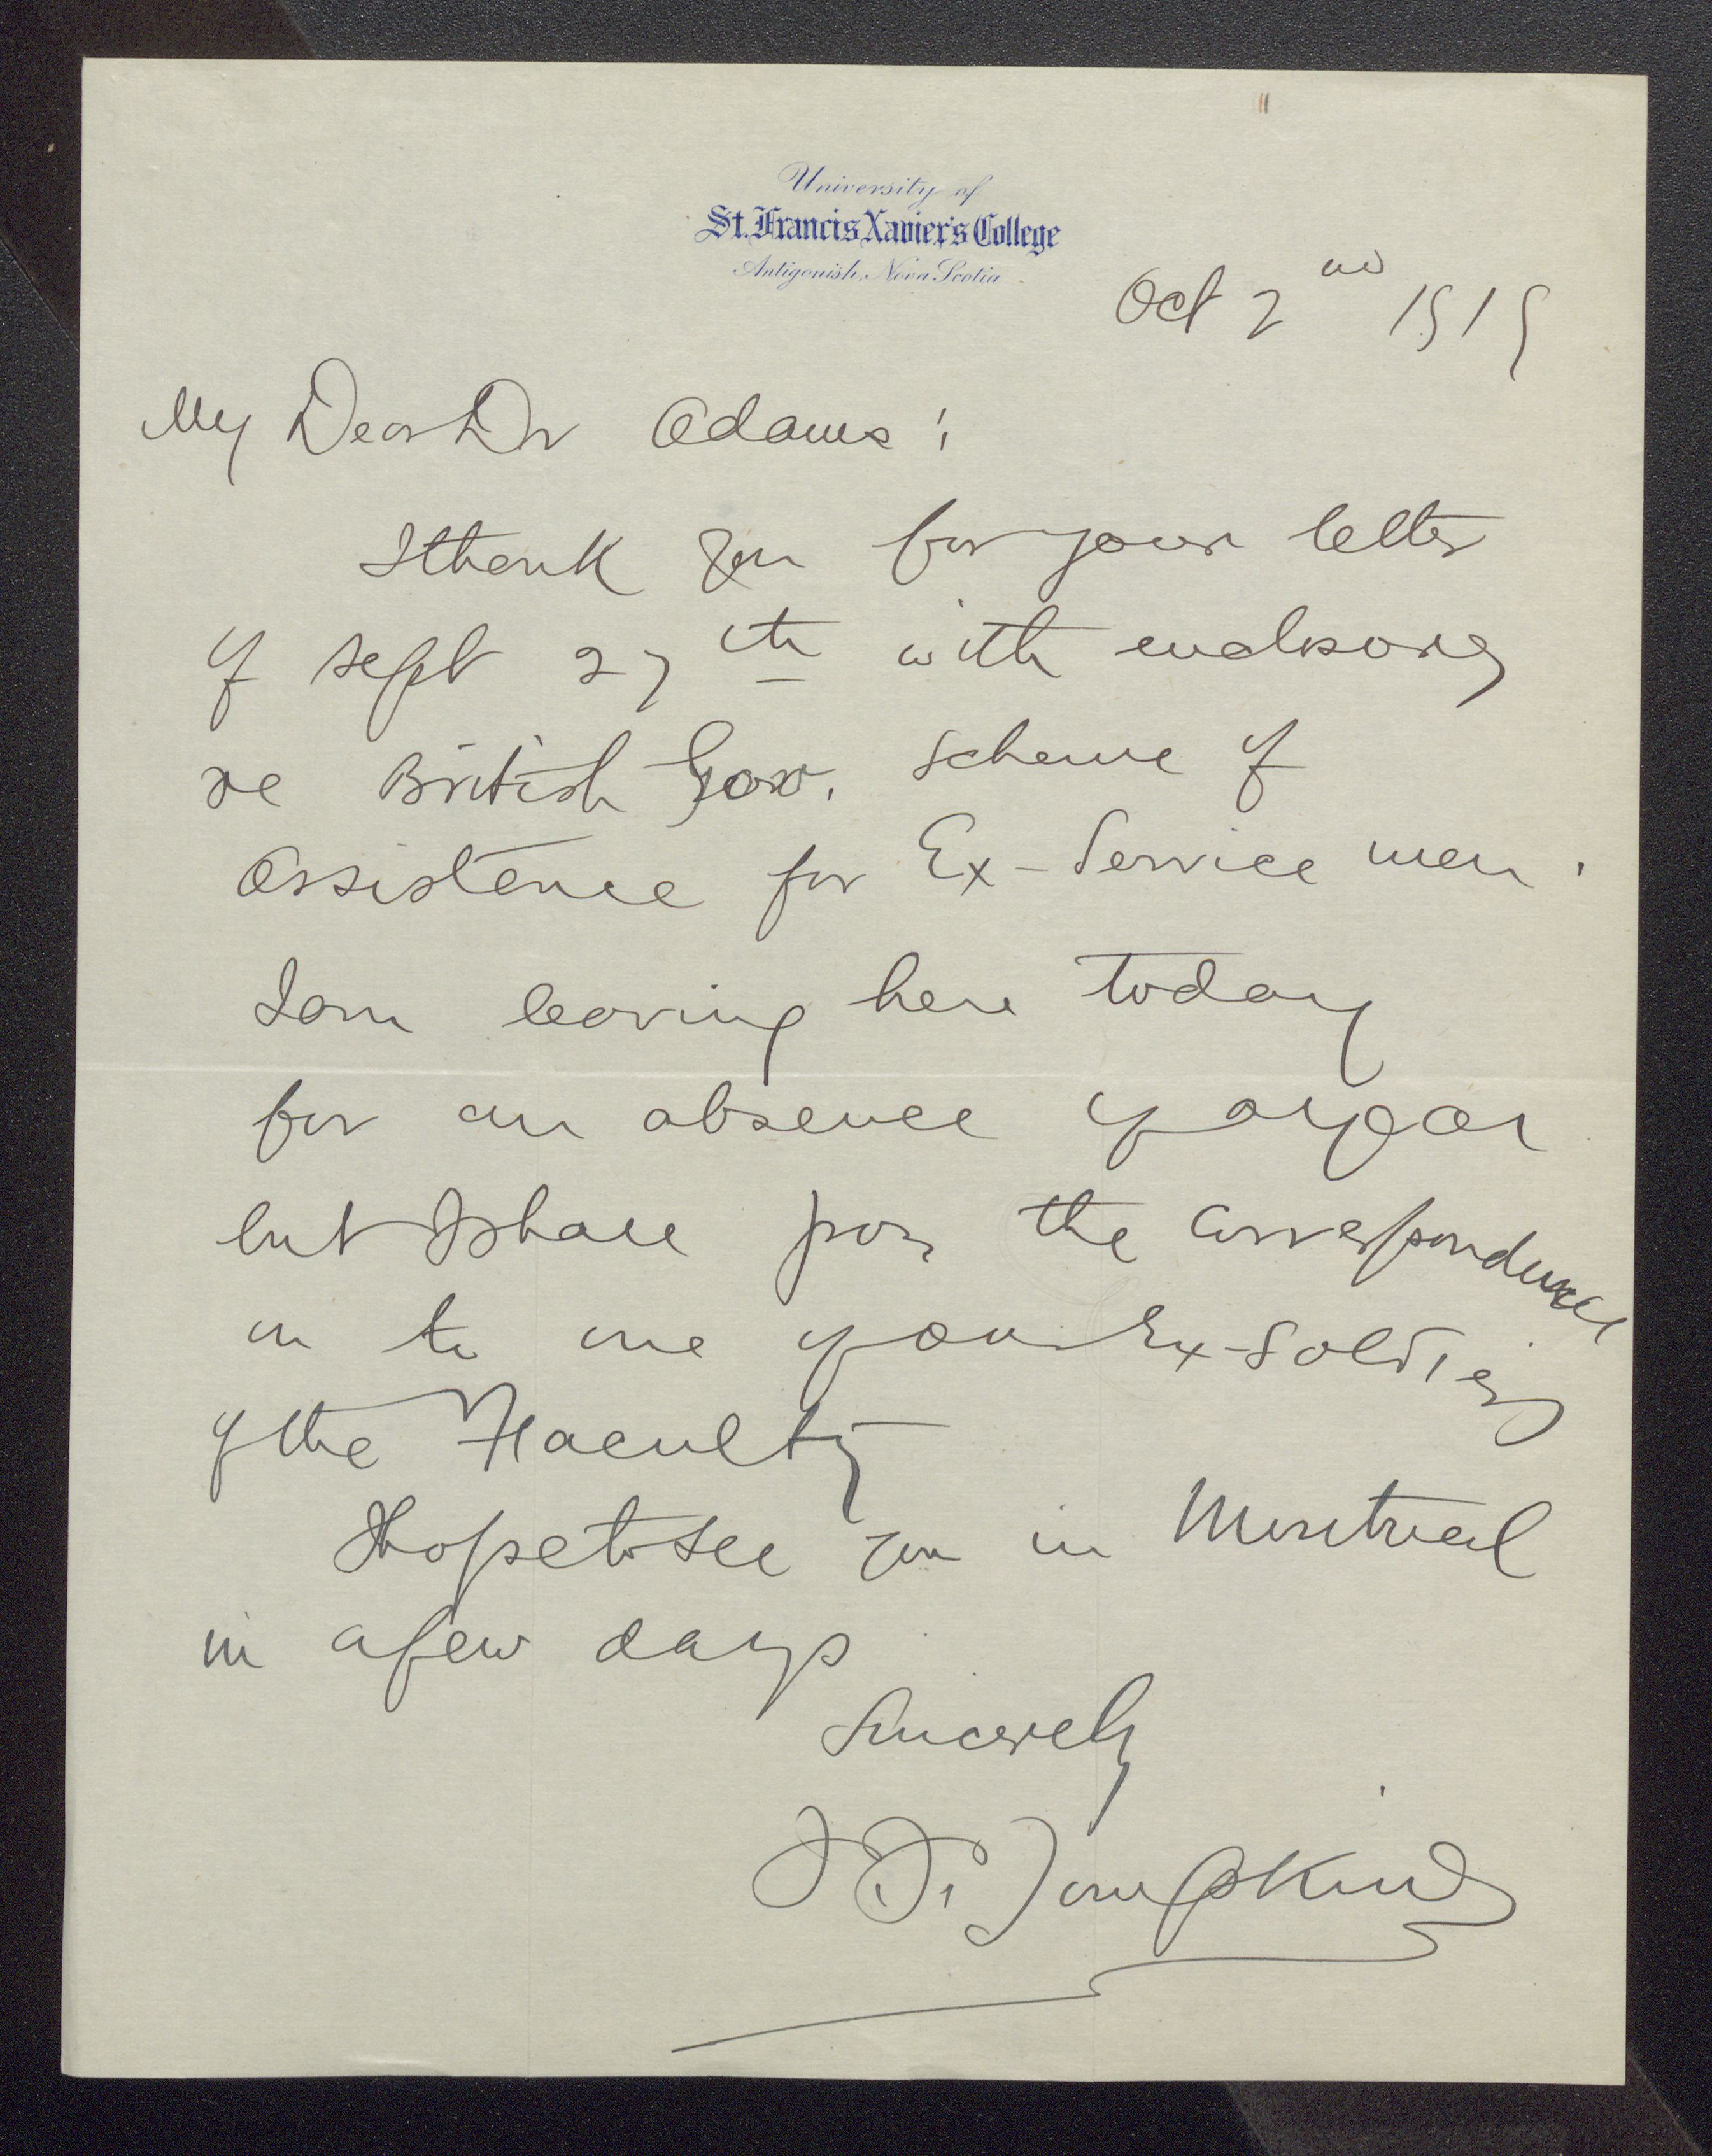 University of
St. Francis Xavier's College
Antigonish, Nova Scotia
Oct 2nd 1919
My Dear Dr Adams:
I thank you for your letter
of Sept 27th with enclosures
re British Gov. scheme of
Assistence for Ex-Service men.
I am leaving here today
for an absence of a year
but I shall pass the correspondence
on to one of our Ex-Soldiers
of the Faculty
I hope to see you in Montreal
in a few days
Sincerely
J. J. Tompkins